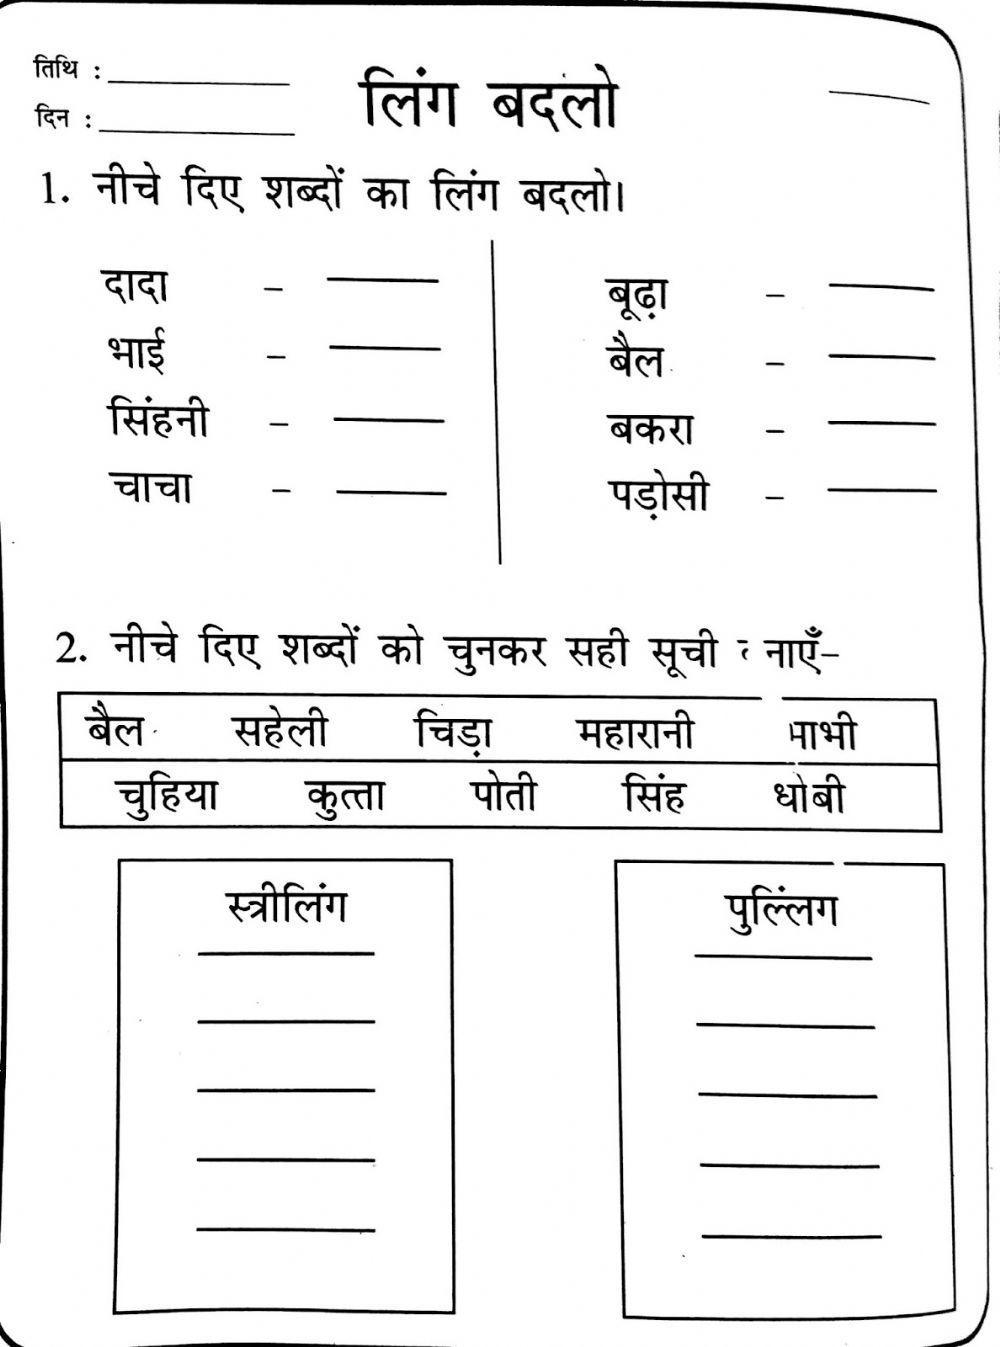 तिथि : ____________
दिन : ____________
लिंग बदलो
1. नीचे दिए शब्दों का लिंग बदलो।
दादा - ______ बूढ़ा - ______
भाई - ______ बैल - ______
सिंहनी - ______ बकरा - ______
चाचा - ______ पड़ोसी - ______
2. नीचे दिए शब्दों को चुनकर सही सूची बनाएँ-
बैल सहेली चिड़ा महारानी भाभी
चुहिया कुत्ता पोती सिंह धोबी
स्त्रीलिंग पुल्लिंग